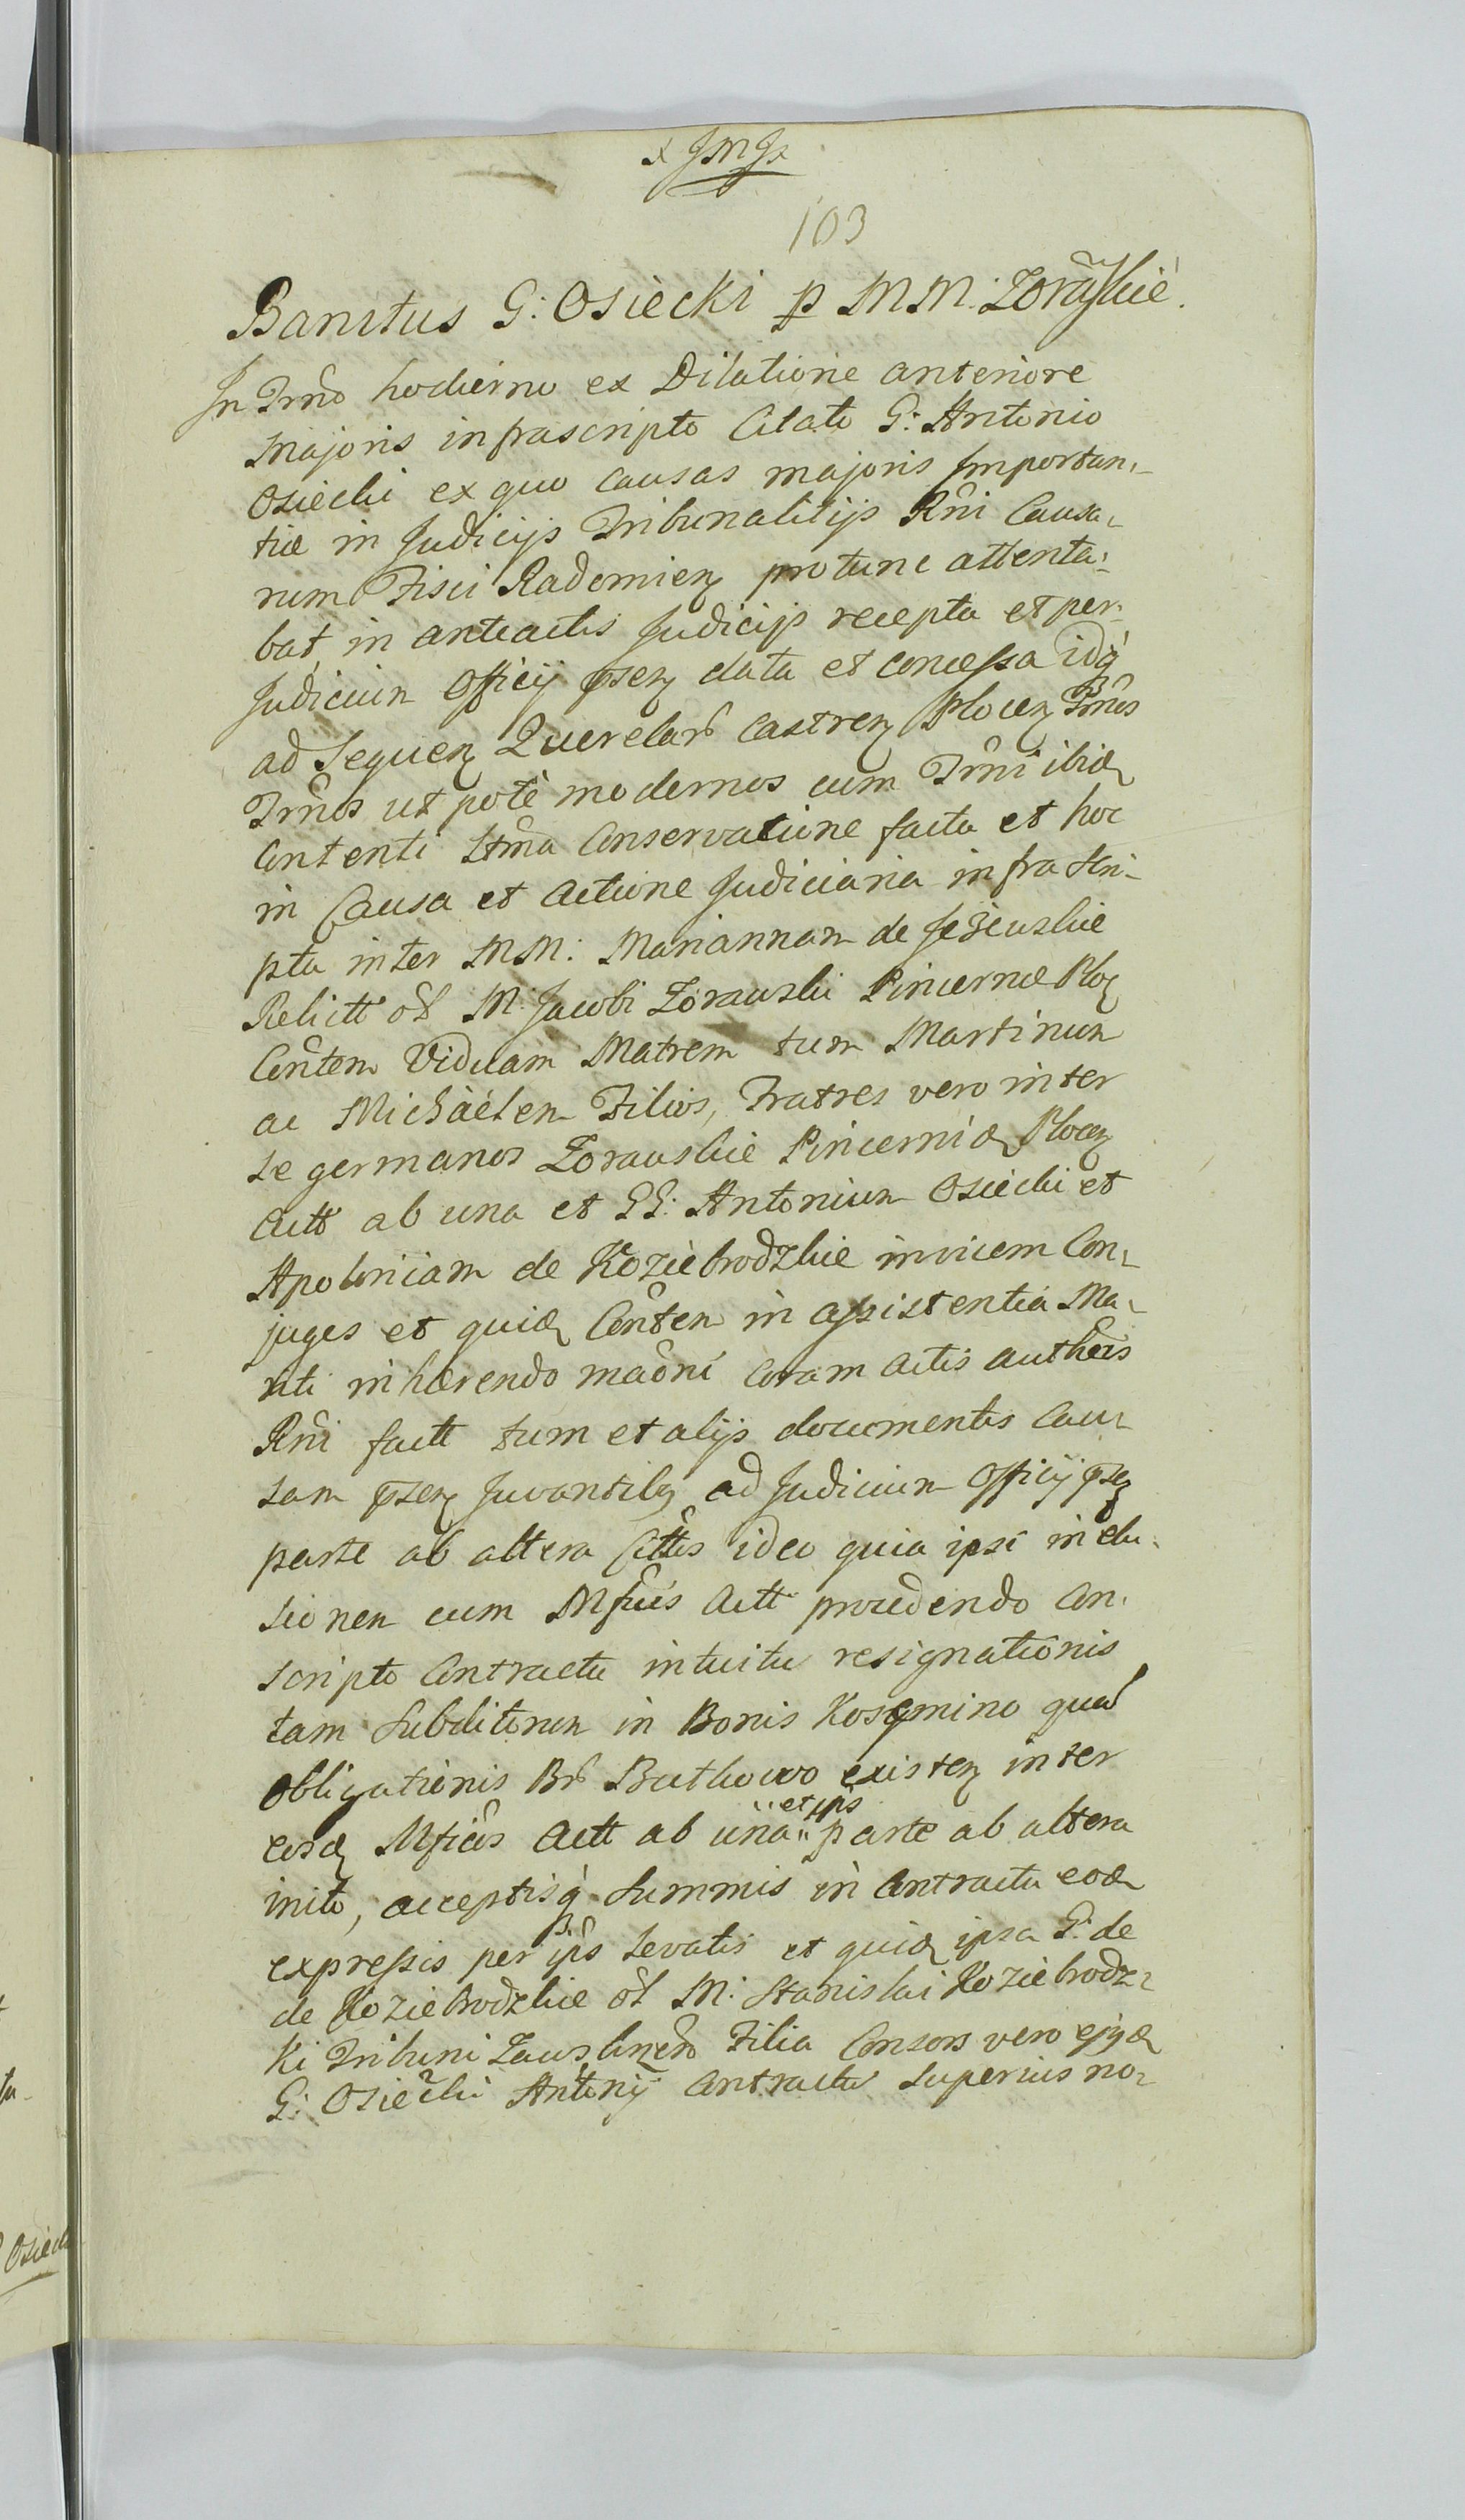 103
Banitus G: Osiecki p MM: Zorãskie.
In Trno hodierno ex Dilatione anteriore
Majoris infrascripto Citato G: Antonio
Osiecki ex quo causas majoris Importan-
tiæ in Judicijs Tribunalitijs Rñi Causa-
rum Fisci Radomien protunc attenta-
bat in anteactis Judicijs recepta et per
Judicium Officij psen data et concessa idq
ad sequen Querelar Castren Plocen Prnes
Trnos ut pote modernos cum Trni ibid
Contenti Stma Conservatione facta et hoc
in Causa et Actione Judiciaria infra scri-
pta inter MM: Mariannam de Jeżewskie
Relictt ol M: Jacobi Zorawski Pincernæ Ploc
Conten Viduam Matrem tum Martinum
ac Michaelem Filios, Fratres vero inter
se germanos Zorawskie Pincernid Plocen
Actt ab una et GG: Antonium Osiecki et
Apoloniam de Koziebrodzkie invicem Con-
juges et quid Conten in assistentia Ma-
riti inhærendo maõni coram Actis authcis
Rñi factt tum et alijs documentis Cau-
sam psen Juvantibus ad Judicium Officij psen
parte ab altera Cittos ideo quia ipsi in elu-
sionem cum Mficis Actt procedendo con-
scripto Contractu intuitu resignationis
tam Subditorum in Bonis Kosemino qua
Obligationis Br Buthowo existen inter
eosd Mficos Actt ab una " parte ab altera
" et ipos
inito, acceptisq Summis in Contractu eod
expressis per ipos levatis et quid ipsa G: de
de Koziebrodzkie ol M: Stanislai Koziebrodz-
ki Tribuni Zawskrzen Filia Consors vero ejusd
G: Osiecki Antonij Contractus superius no-